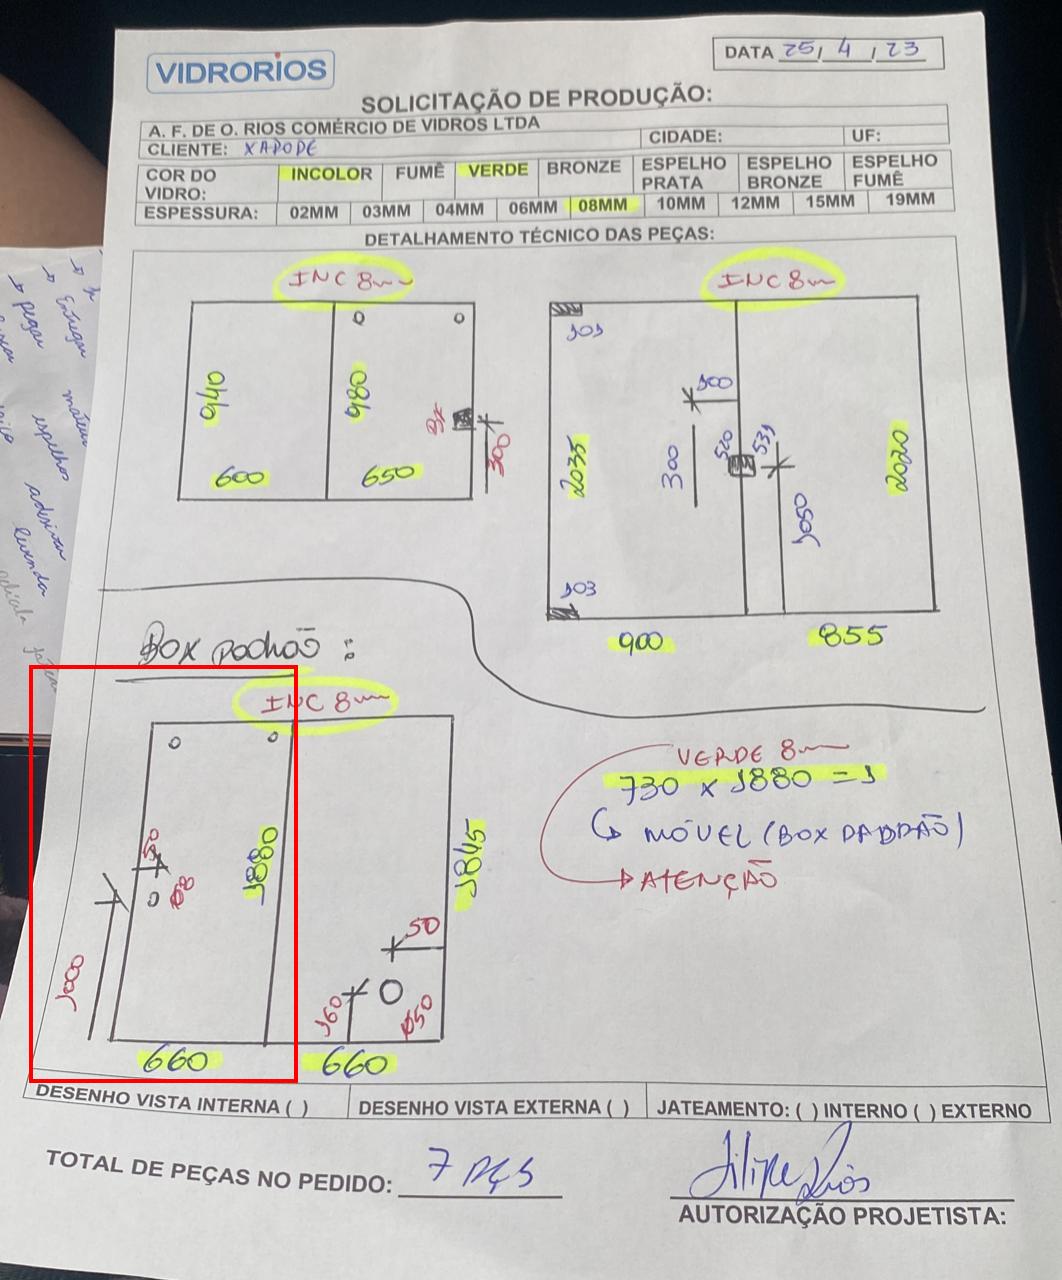 VIDRORIOS
DATA 25/4/23
SOLICITAÇÃO DE PRODUÇÃO:
A. F. DE O. RIOS COMÉRCIO DE VIDROS LTDA
CLIENTE: XAPOPE CIDADE: UF:
COR DO VIDRO: INCOLOR FUMÊ VERDE BRONZE ESPELHO PRATA ESPELHO BRONZE ESPELHO FUMÊ
ESPESSURA: 02MM 03MM 04MM 06MM 08MM 10MM 12MM 15MM 19MM
DETALHAMENTO TÉCNICO DAS PEÇAS:
INC 8mm
940
980
300
600
650
INC 8mm
103
100
2035
300
520
531
2020
1050
103
900
855
Box padrão:
INC 8mm
50
Ø8
1880
1845
1000
50
160
Ø50
660
660
VERDE 8mm
730 x 1880 = 1
MÓVEL (BOX PADRÃO)
ATENÇÃO
DESENHO VISTA INTERNA ( ) DESENHO VISTA EXTERNA ( ) JATEAMENTO: ( ) INTERNO ( ) EXTERNO
TOTAL DE PEÇAS NO PEDIDO: 7 PÇS
Filipe Rios
AUTORIZAÇÃO PROJETISTA:
→ Entregar
→ pegar
espelho
adesivar
levando